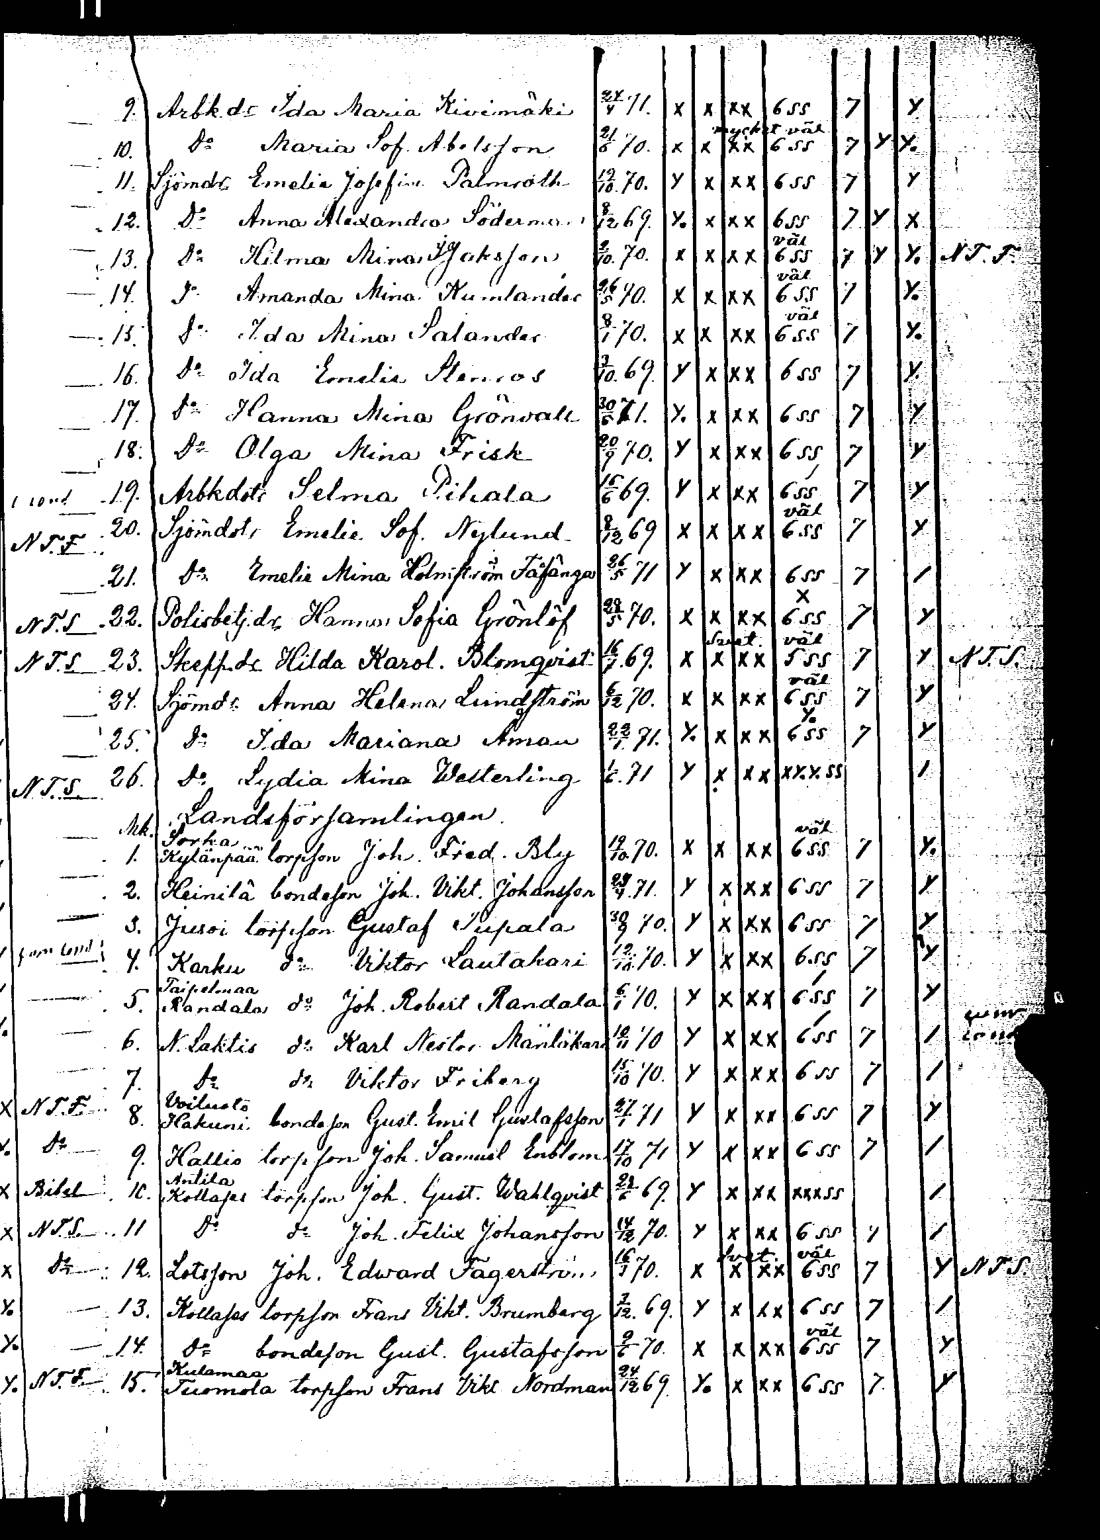 9. Arbk.dr Ida Maria Kivimäki 24/4 71. x x xx 6 ss 7 Y
mycket väl
10. Do Maria Sof. Abelsson 21/6 70. x x xx 6 ss 7 Y Y.
11. Sjömdr Emelie Josefin. Palmroth 19/10 70. Y x xx 6 ss 7 Y
12. Do Anna Alexandra Söderman 8/12 69. Y. x xx 6 ss 7 Y X
väl
13. Do Hilma Mina Isaksson 2/10. 70. x x xx 6 ss 7 Y Y. N.T.F.
väl
14. Do Amanda Mina Kumlander 26/5 70. x x xx 6 ss 7 Y.
väl
15. Do Ida Mina Salander 8/1 70. x x xx 6 ss 7 Y.
16. Do Ida Emelie Stenroos 3/10. 69. Y x xx 6 ss 7 Y
17. Do Hanna Mina Grönvall 30/5 71. Y. x xx 6 ss 7 Y
18. Do Olga Mina Frisk 20/9 70. Y x xx 6 ss 7 Y
19. Arbkdotr Selma Pihala 15/6 69. Y x xx 6 ss 7 Y
väl
N.T.F. 20. Sjömdotr Emelie Sof. Nylund 8/12 69 x x xx 6 ss 7 x
21. Do Emelie Mina Holmström Täfänga 26/5 71 Y x xx 6 ss 7 /
x
N.T.S. 22. Polisbetj.dr Hanna Sofia Grönlöf 28/5 70. x x xx 6 ss 7 Y
Svet. väl
N.T.S. 23. Skepp.dr Hilda Karol. Blomqvist 16/7 69. x x xx 5 ss 7 Y N.T.S.
väl
24. Sjömdr Anna Helena Lundström 6/12 70. x x xx 6 ss 7 Y
Y.
25. Do Ida Mariana Åman 22/1 71. Y. x xx 6 ss 7 Y
N.T.S. 26. Do Lydia Mina Westerling 1/6. 71 Y x xx xY.Y.ss /
Landsförsamlingen.
Mk. Sorka väl
1. Kylänpää torpson Joh. Fred. Bly 19/10 70. x x xx 6 ss 7 Y.
2. Heinilä bondeson Joh. Vikt. Johansson 24/4 71. Y x xx 6 ss 7 Y
3. Jusoi torpson Gustaf Supala 30/9 70. Y x xx 6 ss 7 Y
4. Karku do Viktor Lautakari 12/10. 70. Y x xx 6 ss 7 Y
Taipelmaa
5. Randala do Joh. Robert Randala 6/1 70. Y x xx 6 ss 7 Y
6. N. Laktis do Karl Nestor 10/11 70 Y x xx 6 ss 7 /
7. Do do Viktor Friberg 15/10 70. Y x xx 6 ss 7 /
Voiluoto
x N.T.F. 8. Hakuni bondeson Gust. Emil Gustafsson 27/1 71 Y x xx 6 ss 7 Y
Y. Do 9. Hallio torpson Joh. Samuel Enblom 17/10 71 Y x xx 6 ss 7 /
Antila
x Bibel 10. Kollases torpson Joh. Gust. Wahlqvist 28/6 69. Y x xx xxx ss /
x N.T.S. 11 Do do Joh. Felix Johansson 14/12 70. Y x xx 6 ss 7 /
Svet. väl
x Do 12. Lotsson Joh. Edward Fagerström 16/3 70. x x xx 6 ss 7 Y N.T.S.
Y. 13. Kollases torpson Frans Vikt. Brumberg 7/12. 69. Y x xx 6 ss 7 /
väl
Y. 14. Do bondeson Gust. Gustafsson 9/6 70. x x xx 6 ss 7 Y
Kulamaa
Y. N.T.F. 15. Tuomola torpson Frans Vikt Nordman 24/12 69. Y. x xx 6 ss 7. Y